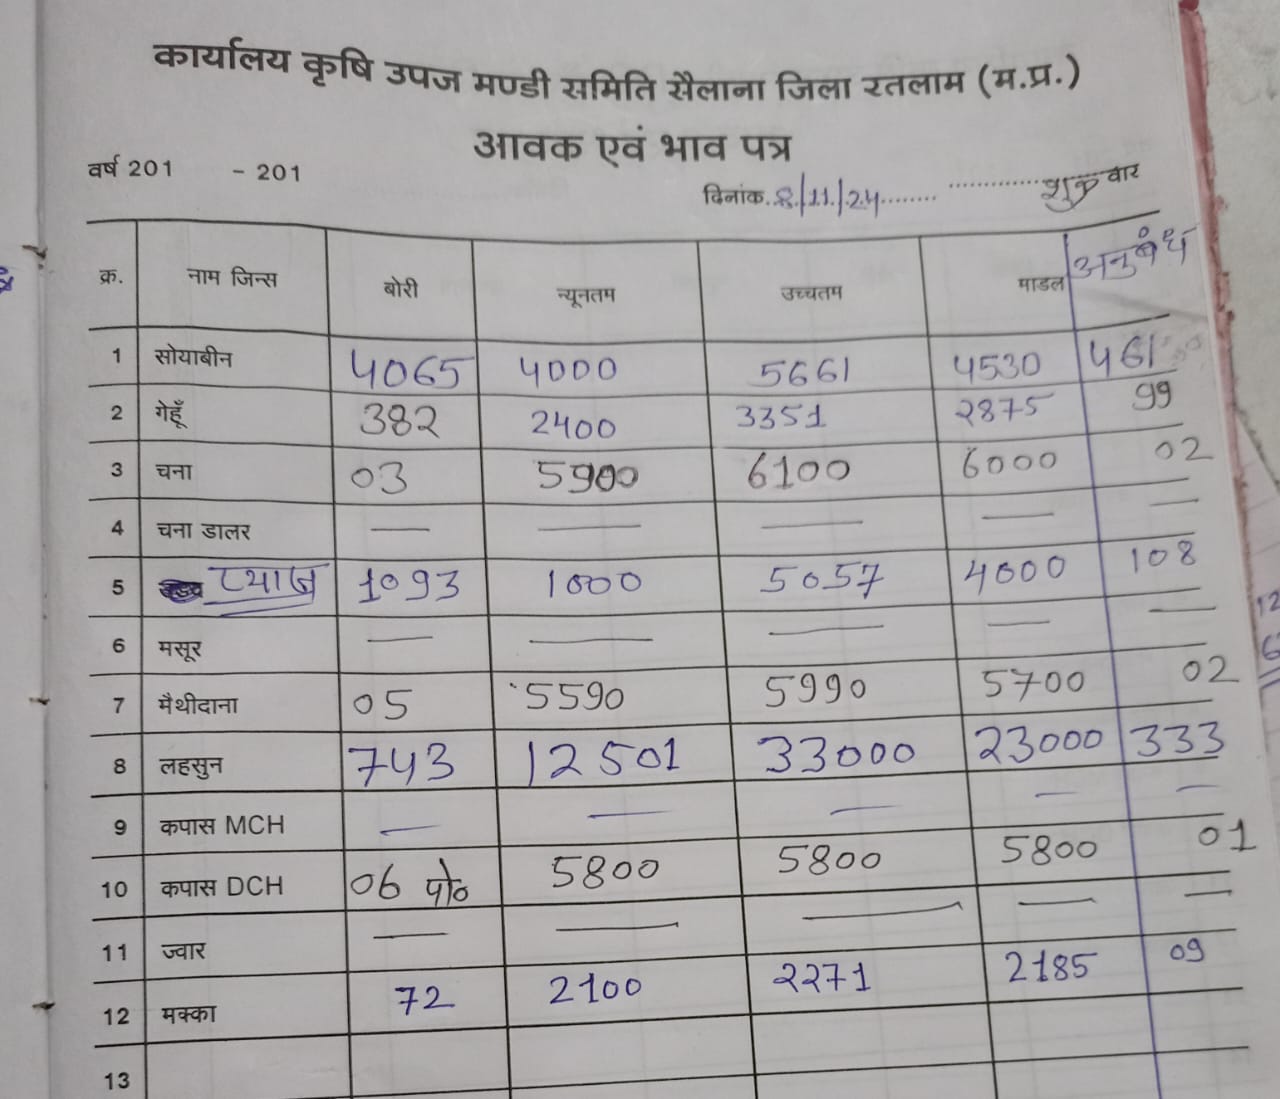 कार्यालय कृषि उपज मण्डी समिति सैलाना जिला रतलाम (म.प्र.)
आवक एवं भाव पत्र
वर्ष 201 - 201
दिनांक. 8/11/24 ........ ............. शुक्र वार
क्र. नाम जिन्स बोरी न्यूनतम उच्चतम माडल अनुबंध
1 सोयाबीन 4065 4000 5661 4530 461
2 गेहूँ 382 2400 3351 2875 99
3 चना 03 5900 6100 6000 02
4 चना डालर — — — — —
5 प्याज 1093 1000 5057 4000 108
6 मसूर — — — — —
7 मैथीदाना 05 5590 5990 5700 02
8 लहसुन 743 12501 33000 23000 333
9 कपास MCH — — — — —
10 कपास DCH 06 पो० 5800 5800 5800 01
11 ज्वार — — — — —
12 मक्का 72 2100 2271 2185 09
13
12